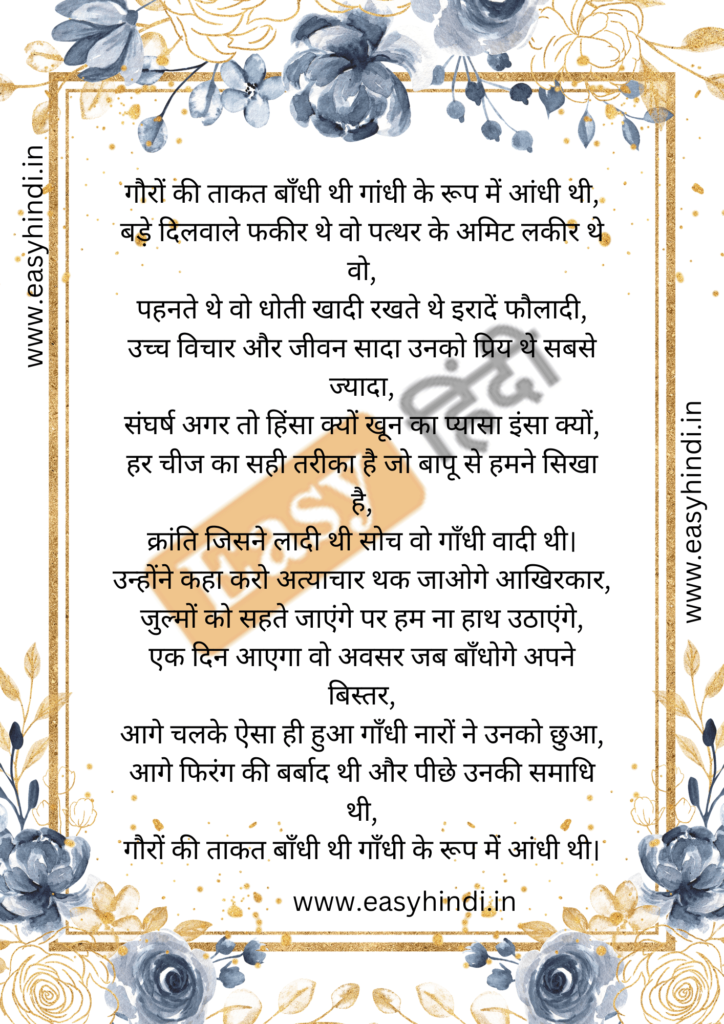 www.easyhindi.in
गौरों की ताकत बाँधी थी गांधी के रूप में आंधी थी,
बड़े दिलवाले फकीर थे वो पत्थर के अमिट लकीर थे
वो,
पहनते थे वो धोती खादी रखते थे इरादें फौलादी,
उच्च विचार और जीवन सादा उनको प्रिय थे सबसे
ज्यादा,
संघर्ष अगर तो हिंसा क्यों खून का प्यासा इंसा क्यों,
हर चीज का सही तरीका है जो बापू से हमने सिखा
है,
क्रांति जिसने लादी थी सोच वो गाँधी वादी थी।
उन्होंने कहा करो अत्याचार थक जाओगे आखिरकार,
जुल्मों को सहते जाएंगे पर हम ना हाथ उठाएंगे,
एक दिन आएगा वो अवसर जब बाँधोगे अपने
बिस्तर,
आगे चलके ऐसा ही हुआ गाँधी नारों ने उनको छुआ,
आगे फिरंग की बर्बाद थी और पीछे उनकी समाधि
थी,
गौरों की ताकत बाँधी थी गाँधी के रूप में आंधी थी।
www.easyhindi.in
www.easyhindi.in
Easy हिंदी